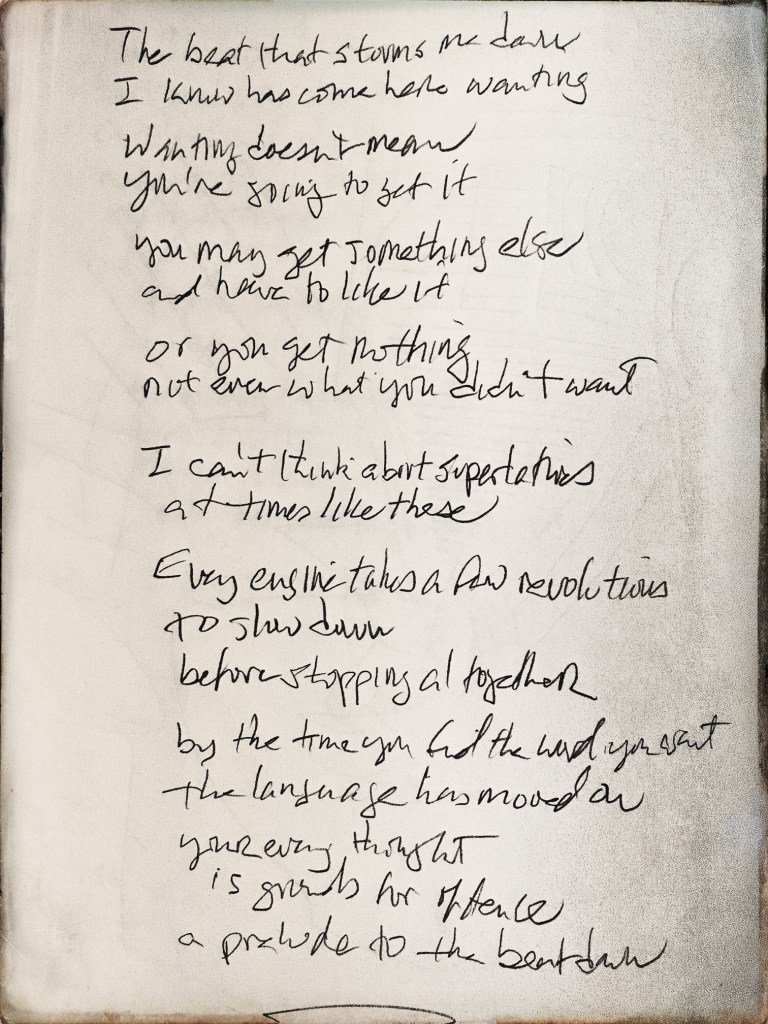 The beat that storms me down
I know has come here wanting
Wanting doesn't mean
you're going to get it
you may get something else
and have to like it
or you get nothing
not even what you didn't want
I can't think about superlatives
at times like these
Every engine takes a few revolutions
to slow down
before stopping altogether
by the time you find the word you want
the language has moved on
your every thought
is grounds for offence
a prelude to the beat down